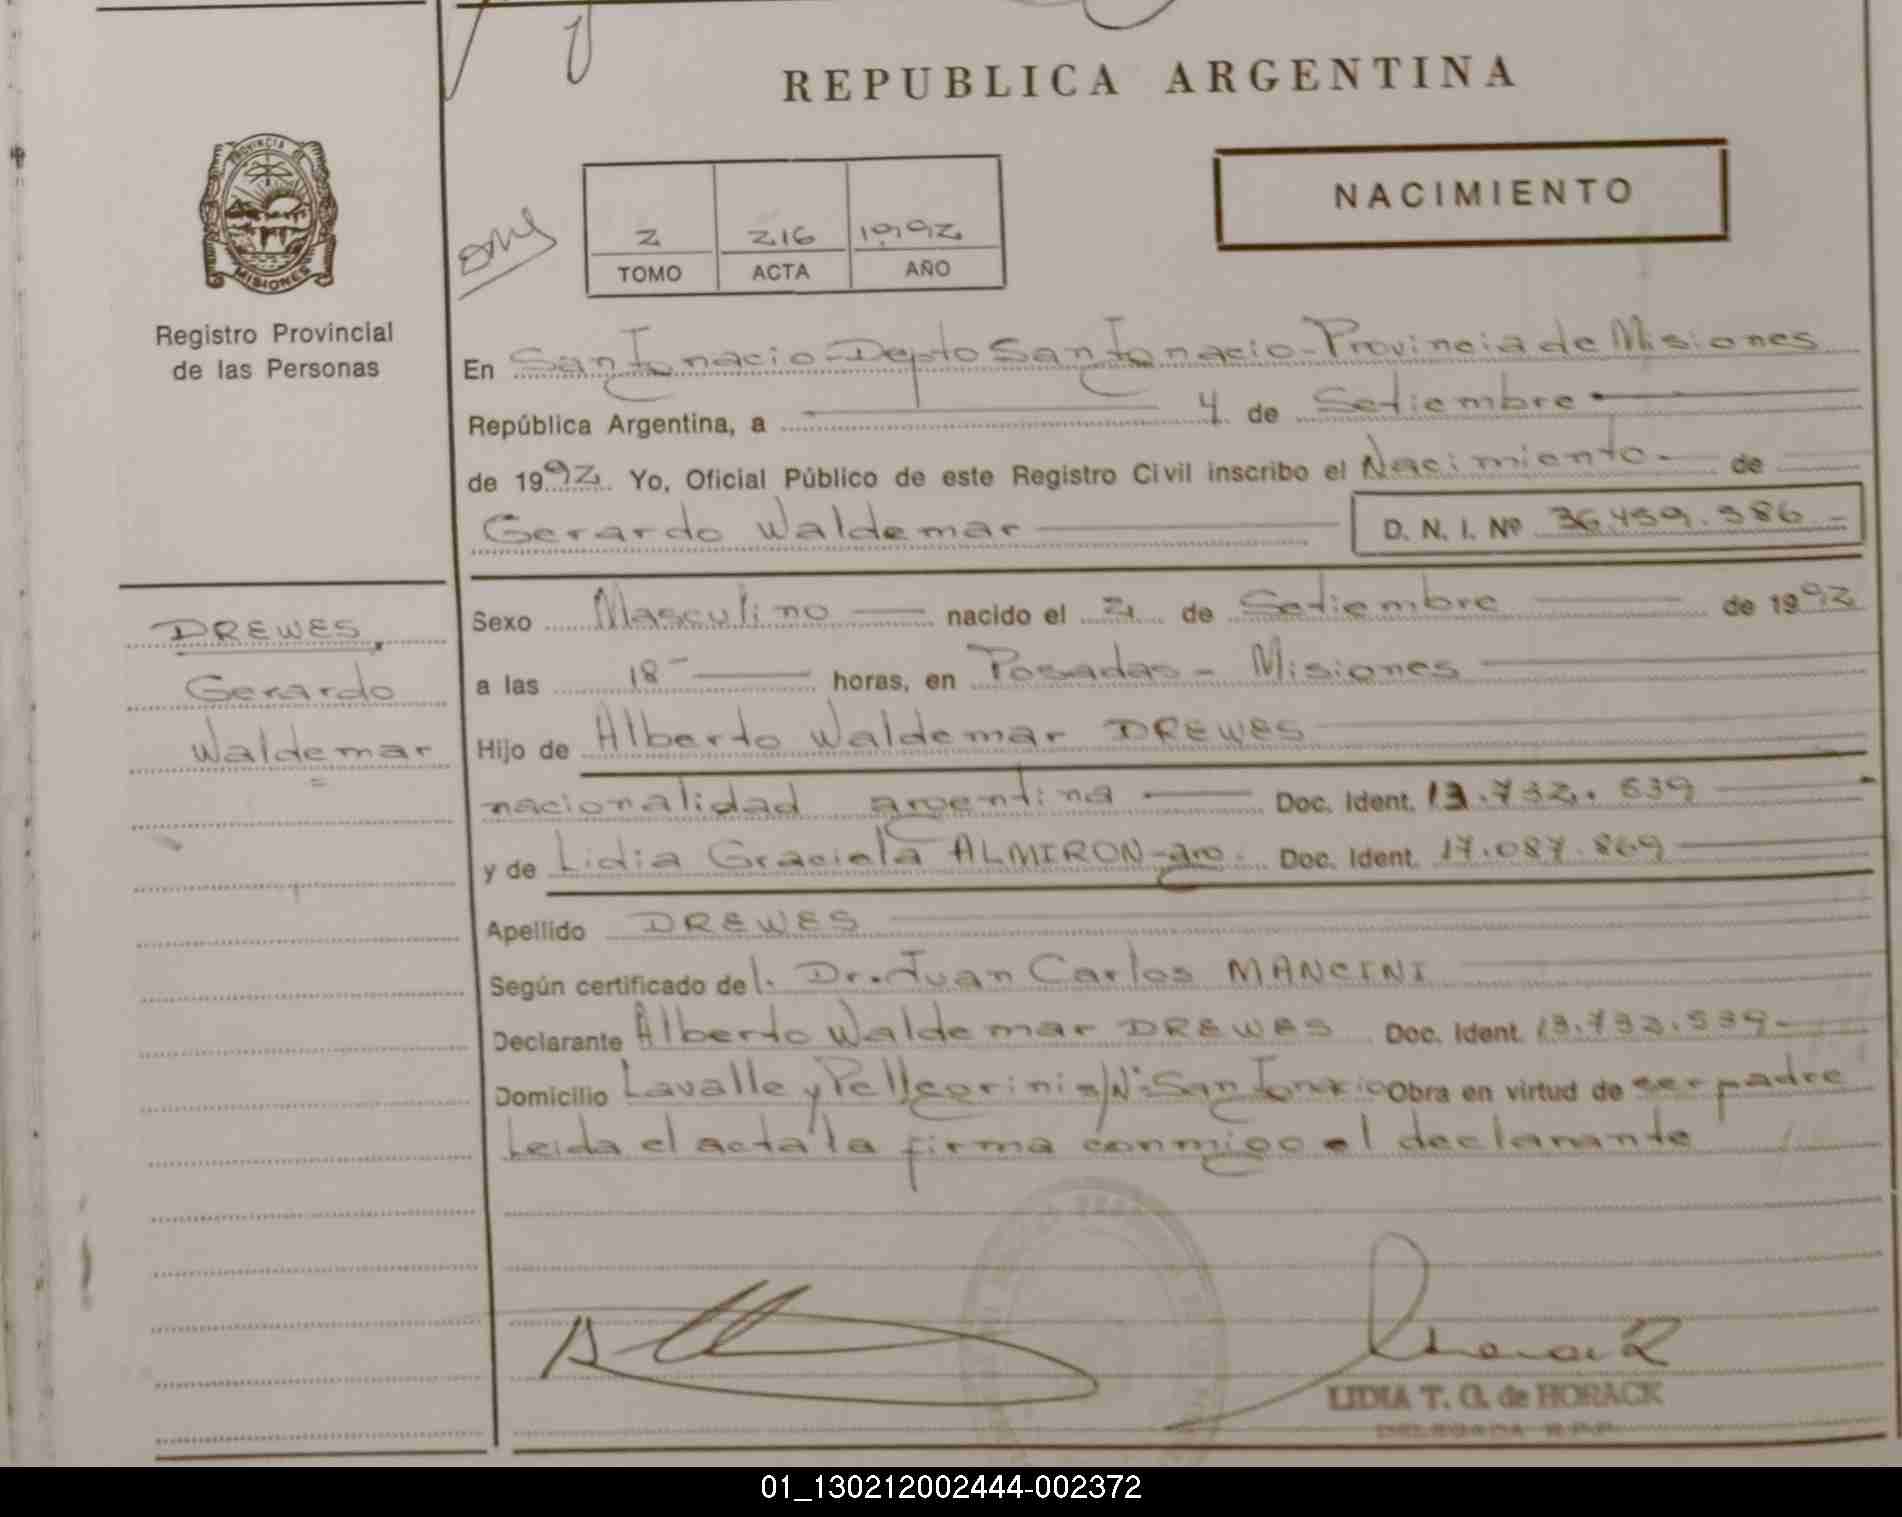 REPUBLICA ARGENTINA
PROVINCIA DE
MISIONES
Registro Provincial
de las Personas
NACIMIENTO
2 216 1992
TOMO ACTA AÑO
En San Ignacio - Depto San Ignacio - Provincia de Misiones
República Argentina, a 4 de Setiembre
de 1992 Yo, Oficial Público de este Registro Civil inscribo el Nacimiento - de
Gerardo Waldemar D. N. I. Nº 36.459.386 -
DREWES,
Gerardo
Waldemar
Sexo Masculino nacido el 2 de Setiembre de 1992
a las 18 - horas, en Posadas - Misiones
Hijo de Alberto Waldemar DREWES
nacionalidad argentina Doc. Ident. 13.732.539
y de Lidia Graciela ALMIRON - arg. Doc. Ident. 17.087.869
Apellido DREWES
Según certificado del. Dr. Juan Carlos MANCINI
Declarante Alberto Waldemar DREWES Doc. Ident. 13.732.539 -
Domicilio Lavalle y Pellegrini s/Nº San Ignacio Obra en virtud de ser padre
Leida el acta la firma conmigo el declarante
LIDIA T. G. de HORACK
DELEGADA R.P.P.
01_130212002444-002372